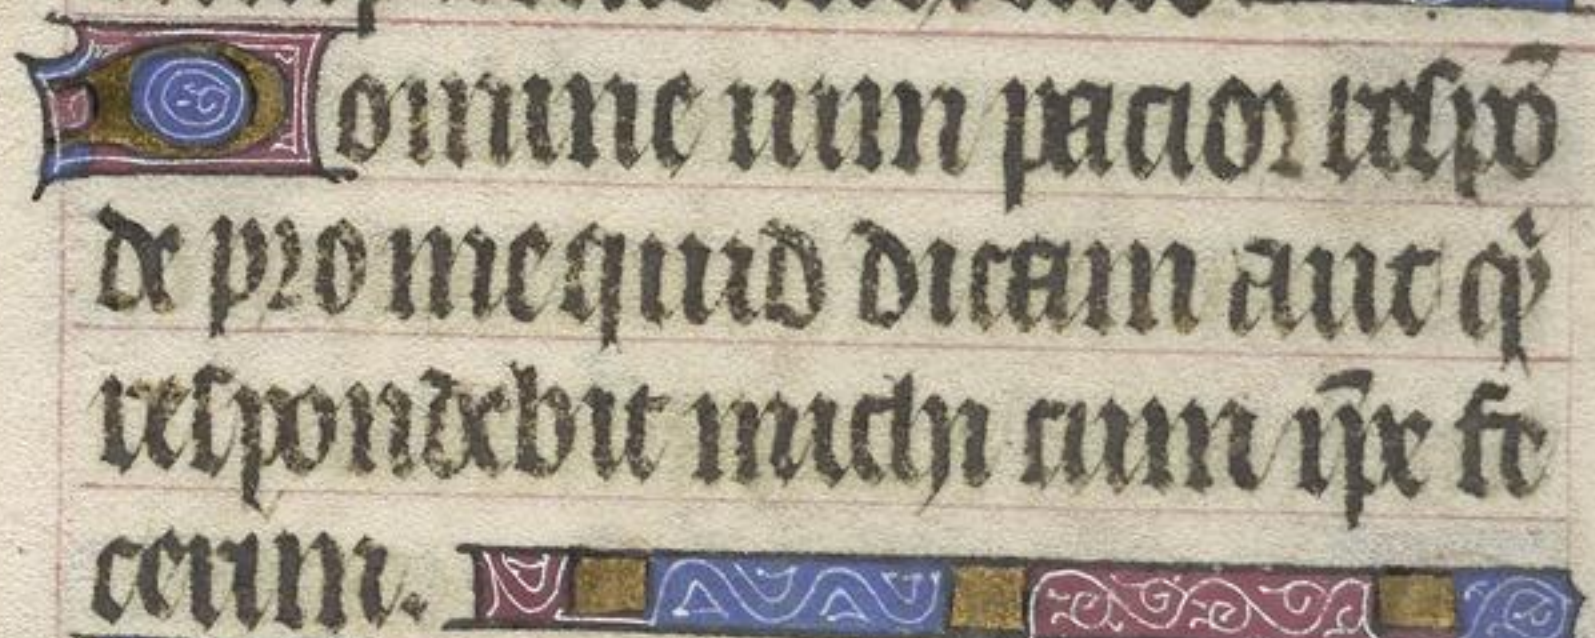 Domine uim pacior respō
de pro me quid dicam aut qͥ
respondebit michi cum ip̄e fe
cerim.